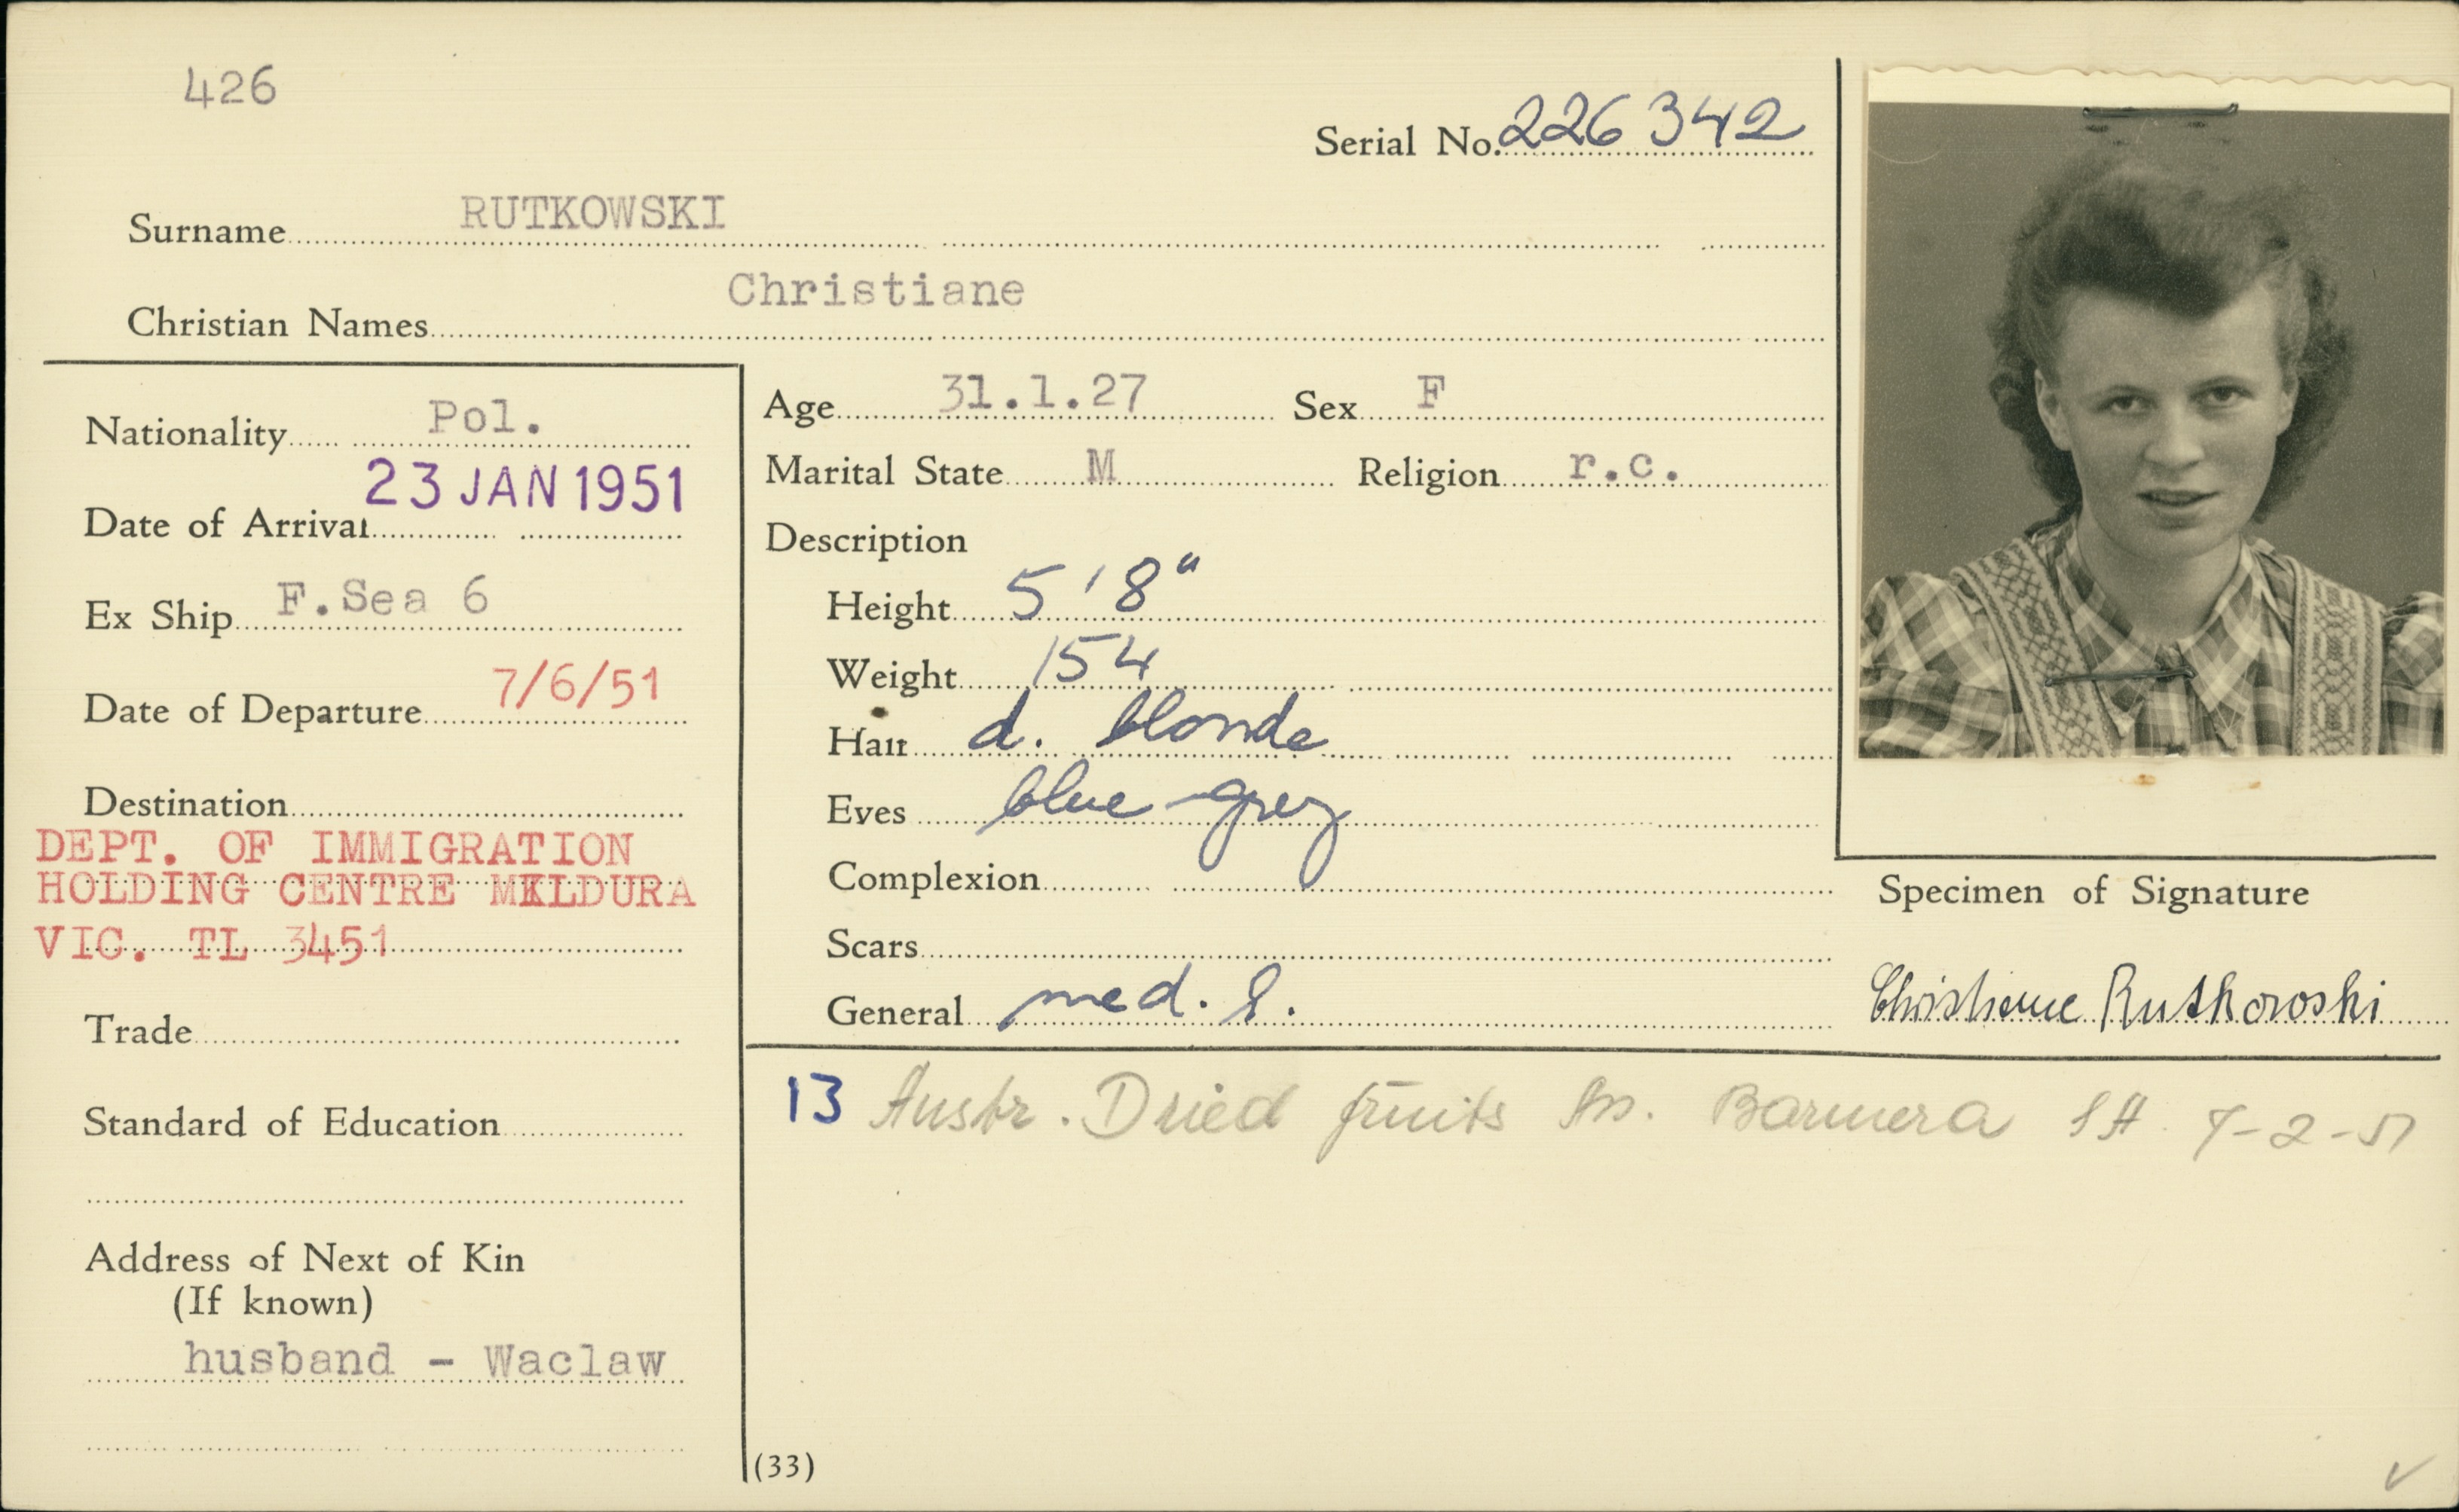 426
Serial No. 226342
Surname RUTKOWSKI
Christian Names Christiane
Nationality Pol.
Date of Arrival 23 JAN 1951
Ex Ship F.Sea 6
Date of Departure 7/6/51
Destination
DEPT. OF IMMIGRATION
HOLDING CENTRE MILDURA
VIC. TL 3451
Trade
Standard of Education
Address of Next of Kin
(If known)
husband - Waclaw
Age 31.1.27 Sex F
Marital State M Religion r.c.
Description
Height 5'8"
Weight 154
Hair d. blonde
Eyes blue-grey
Complexion
Scars
General med.
Specimen of Signature
Christiane Rutkowski
13 Austr. Dried fruits Barmera SA -2-51
(33)